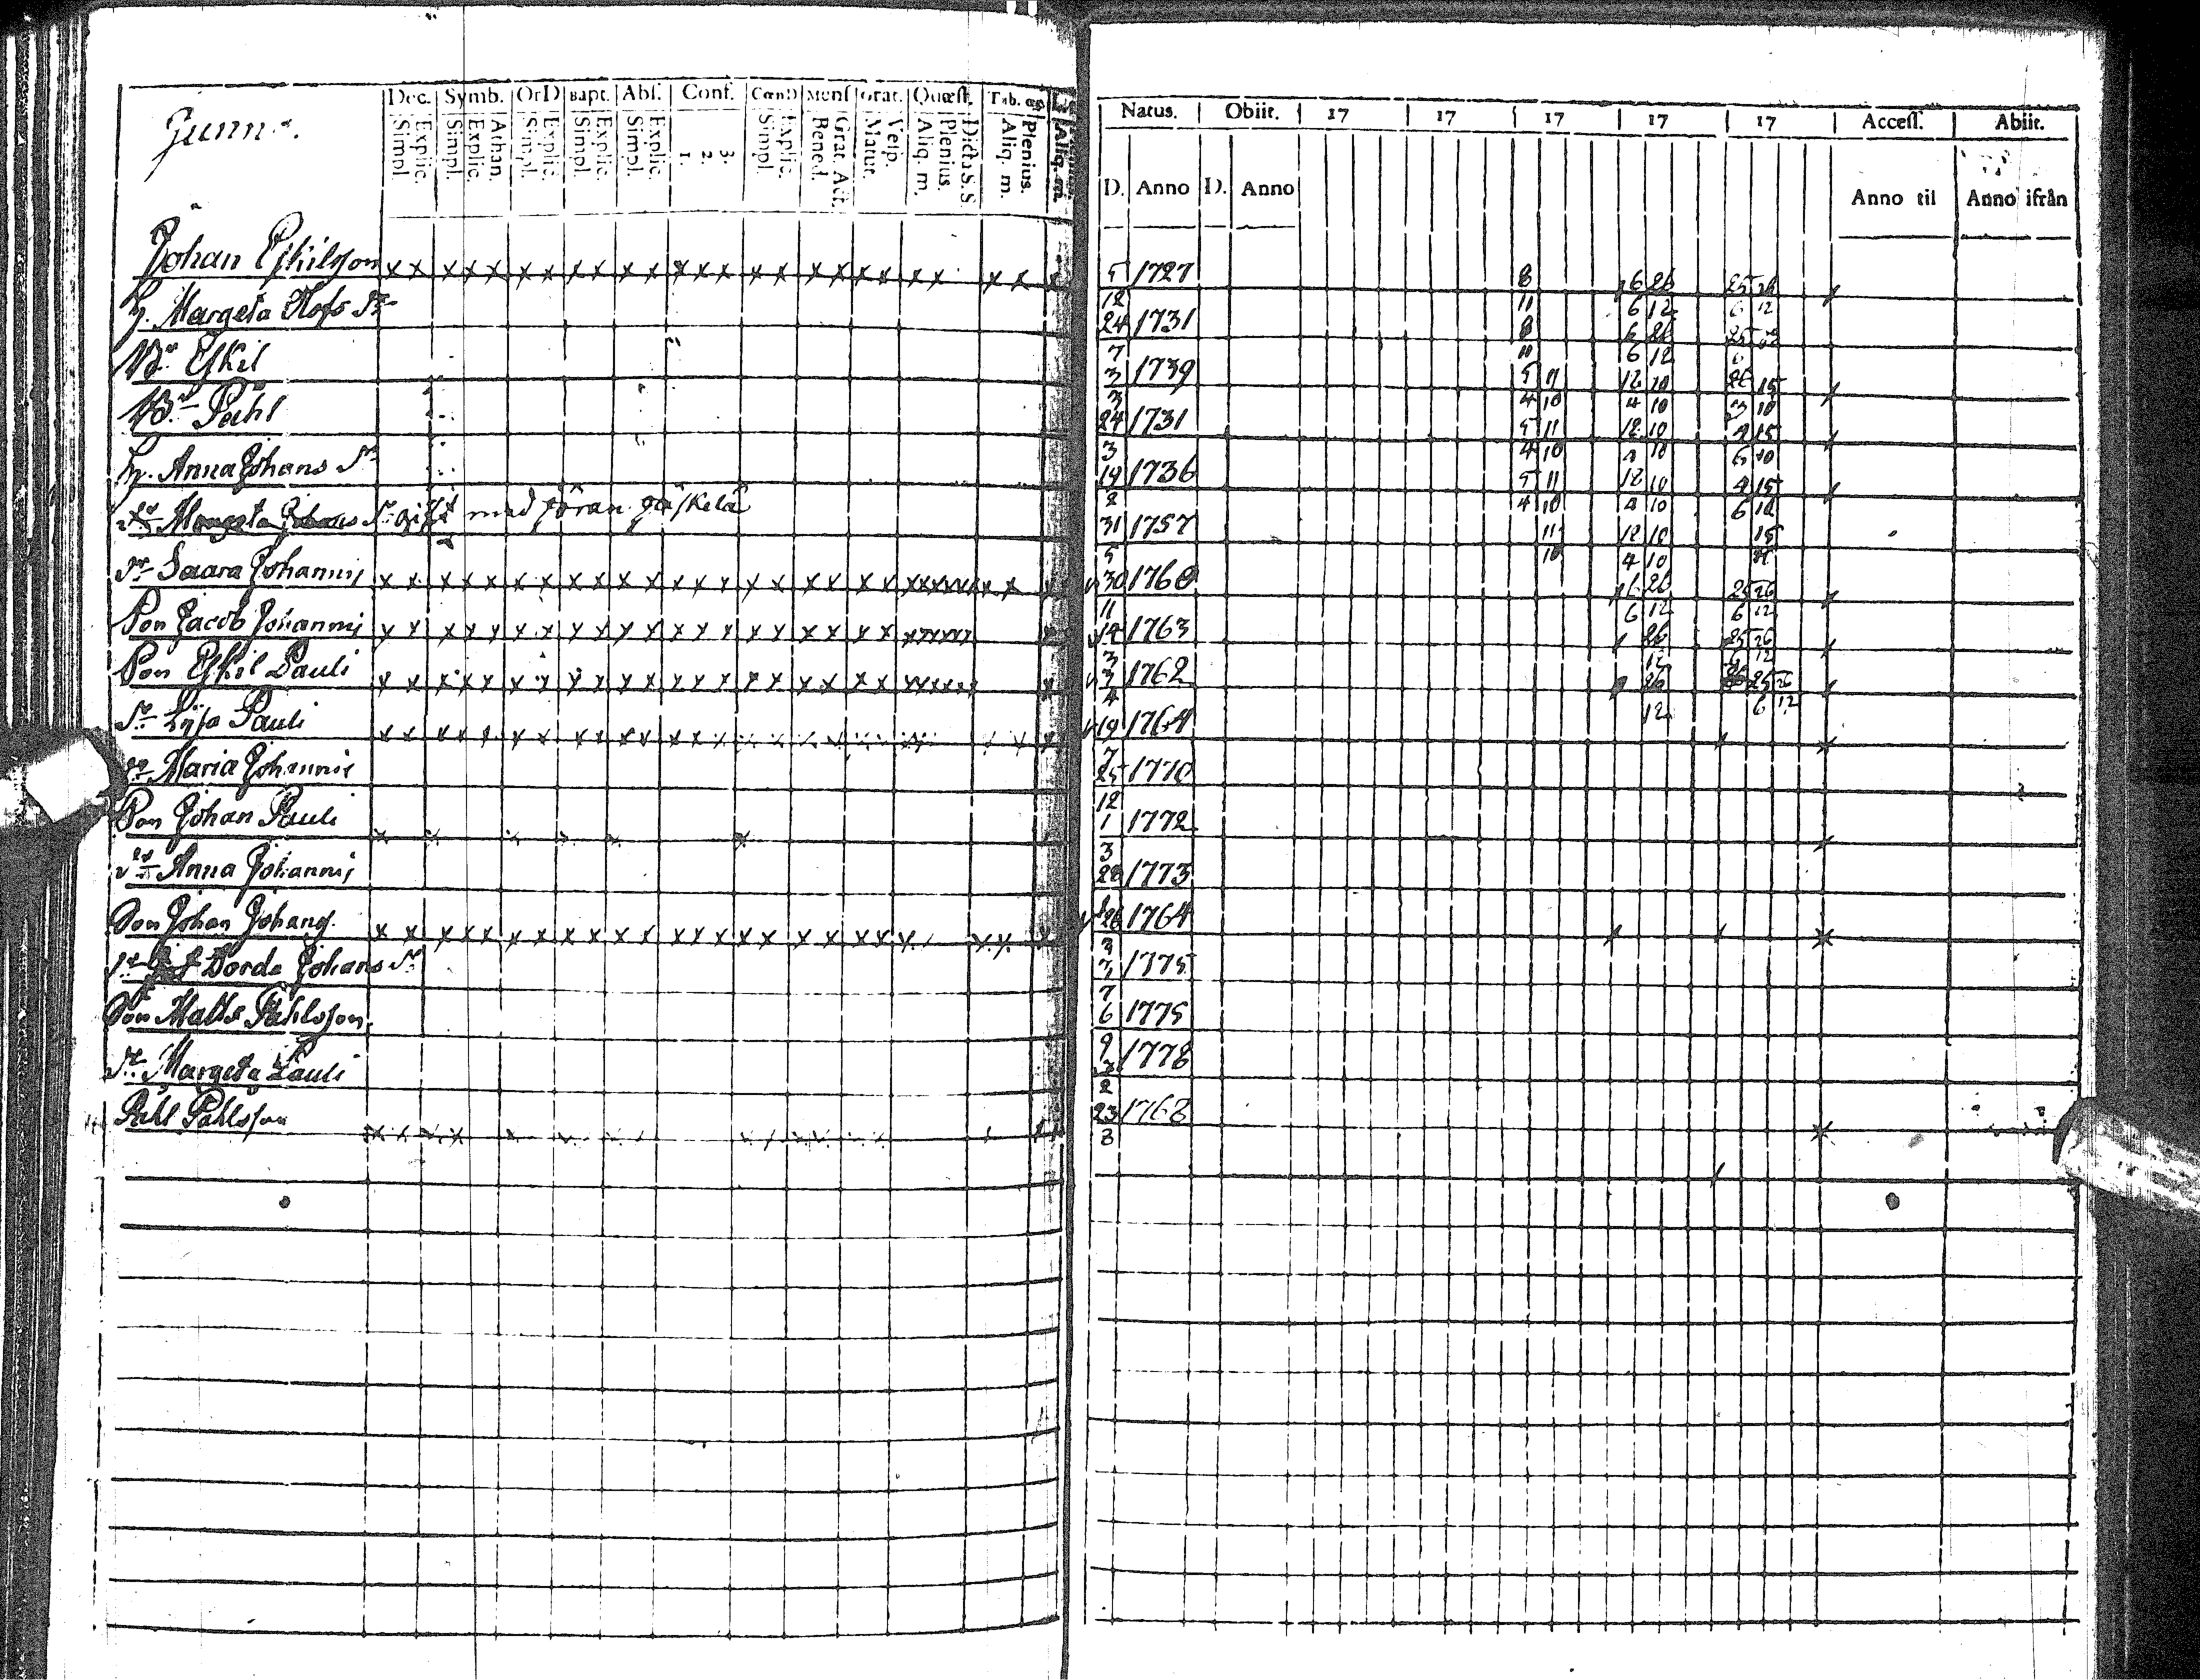 Gunna.
Dec. Symb. OrD Bapt. Abs. Conf. CœnD Mens Grat. Quæst. Tab. œc.
Simpl. Explic. Simpl. Explic. Athan. Simpl. Explic. Simpl. Explic. Simpl. Explic. 1. 2. 3. Simpl. Explic. Bened. Grat. Act. Matut. Vesp. Aliq. m. Plenius. Dicta S. S. Aliq. m. Plenius. Aliq. m.
Natus. Obiit. 17 17 17 17 17 Access. Abiit.
D. Anno D. Anno Anno til Anno ifrån
Johan Eskilsson 5/12 1727 8/11 6/6 26/12 25/6 26/12
H. Margeta Olofs dr 24/7 1731 8/11 6/6 26/12 25/6
Br Eskil 3/3 1739 5/4 11/10 12/4 10/10 15/10
Br Påhl 24/3 1731 5/4 11/10 12/4 10/10 4/6 15/10
H. Anna Johans dr 19/2 1736 5/4 11/10 12/4 10/10 4/6 15/10
dr Margeta Johans dr gift med Jöran 31/5 1757 11/10 12/4 10/10 15
dr Saara Johannis 30/11 1760 6/6 26/12 25/6 26/12
Son Jacob Johannis 14/3 1763 26/12 25/6 26/12
Son Eskil Pauli 3/4 1762 26/12 25/6 26/12
dr Lijsa Pauli 19/7 1764
dr Maria Johannis 25/12 1770
Son Johan Pauli 1/3 1772
dr Anna Johannis 22 1773
Son Johan Johans. 26/3 1764
dr Dorde Johans dr 3/7 1775
Son Matts Påhlsson 6/9 1775
dr Margeta Pauli 1778
Påhl Påhlsson 23/3 1768